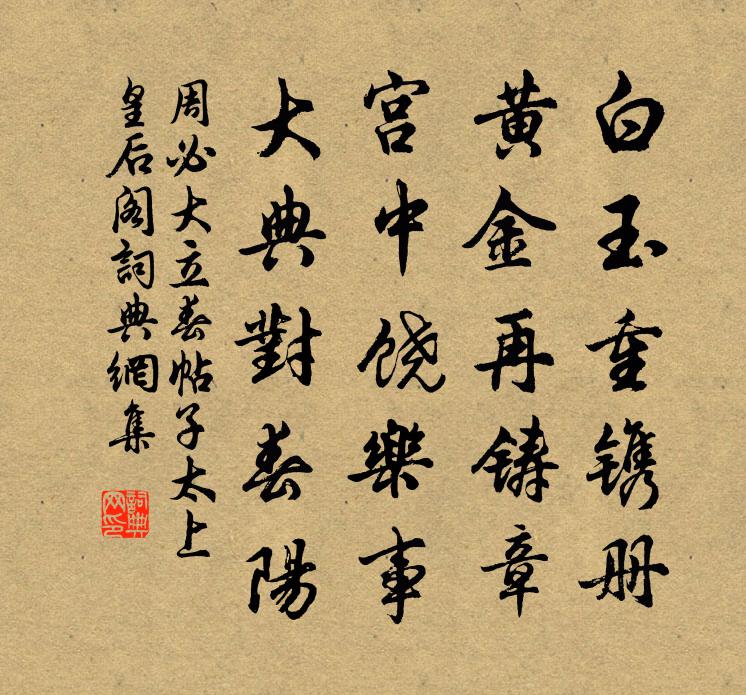 白玉重镌册
黄金再铸章
宫中饶樂事
大典對春陽
周必大立春帖子太上
皇后阁詞典網集
詞典網印